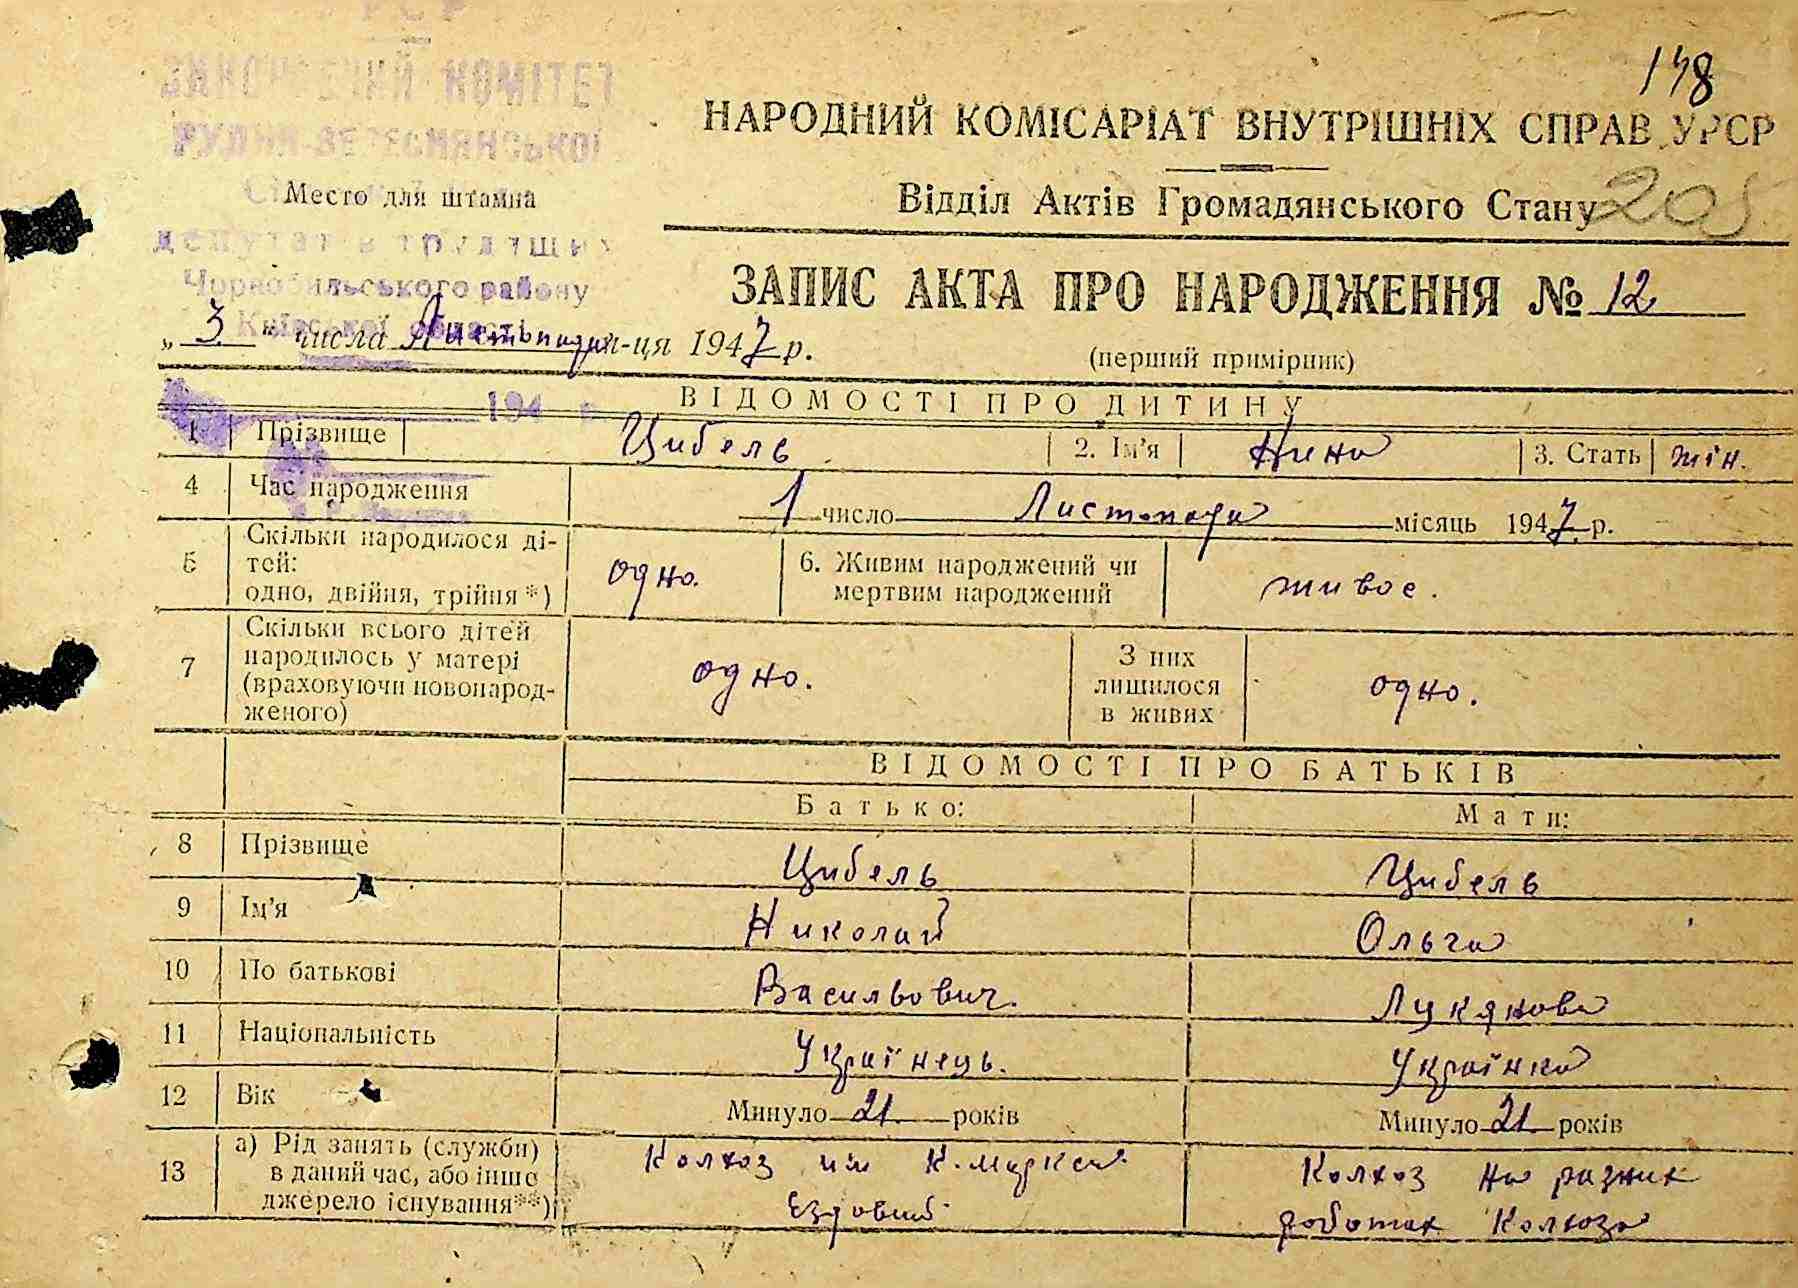 РСР
ВИКОНАВЧИЙ КОМІТЕТ
РУДНЯ-ВЕРЕСНЯНСЬКОЇ
Место для штампа
депутатів трудящих
Чорнобильського району
Київської області
194 р.
148
НАРОДНИЙ КОМІСАРІАТ ВНУТРІШНІХ СПРАВ УРСР
Відділ Актів Громадянського Стану
205
ЗАПИС АКТА ПРО НАРОДЖЕННЯ № 12
„ 3 “ числа Листопада м-ця 1947 р.
(перший примірник)
ВІДОМОСТІ ПРО ДИТИНУ
1 Прізвище Цибель 2. Ім’я Нина 3. Стать жін.
4 Час народження 1 число Листопада місяць 1947 р.
5 Скільки народилося ді-
тей:
одно, двійня, трійня*) одно. 6. Живим народжений чи
мертвим народжений живое.
7 Скільки всього дітей
народилось у матері
(враховуючи новонарод-
женого) одно. З них
лишилося
в живих одно.
ВІДОМОСТІ ПРО БАТЬКІВ
Батько: Мати:
8 Прізвище Цибель Цибель
9 Ім’я Николай Ольга
10 По батькові Васильович. Лукянова
11 Національність Українець. Українка
12 Вік Минуло 21. років Минуло 21. років
13 а) Рід занять (служби)
в даний час, або інше
джерело існування**) Колхоз им К. Маркса
Ездовий
Колхоз на разних
роботах Колхоза